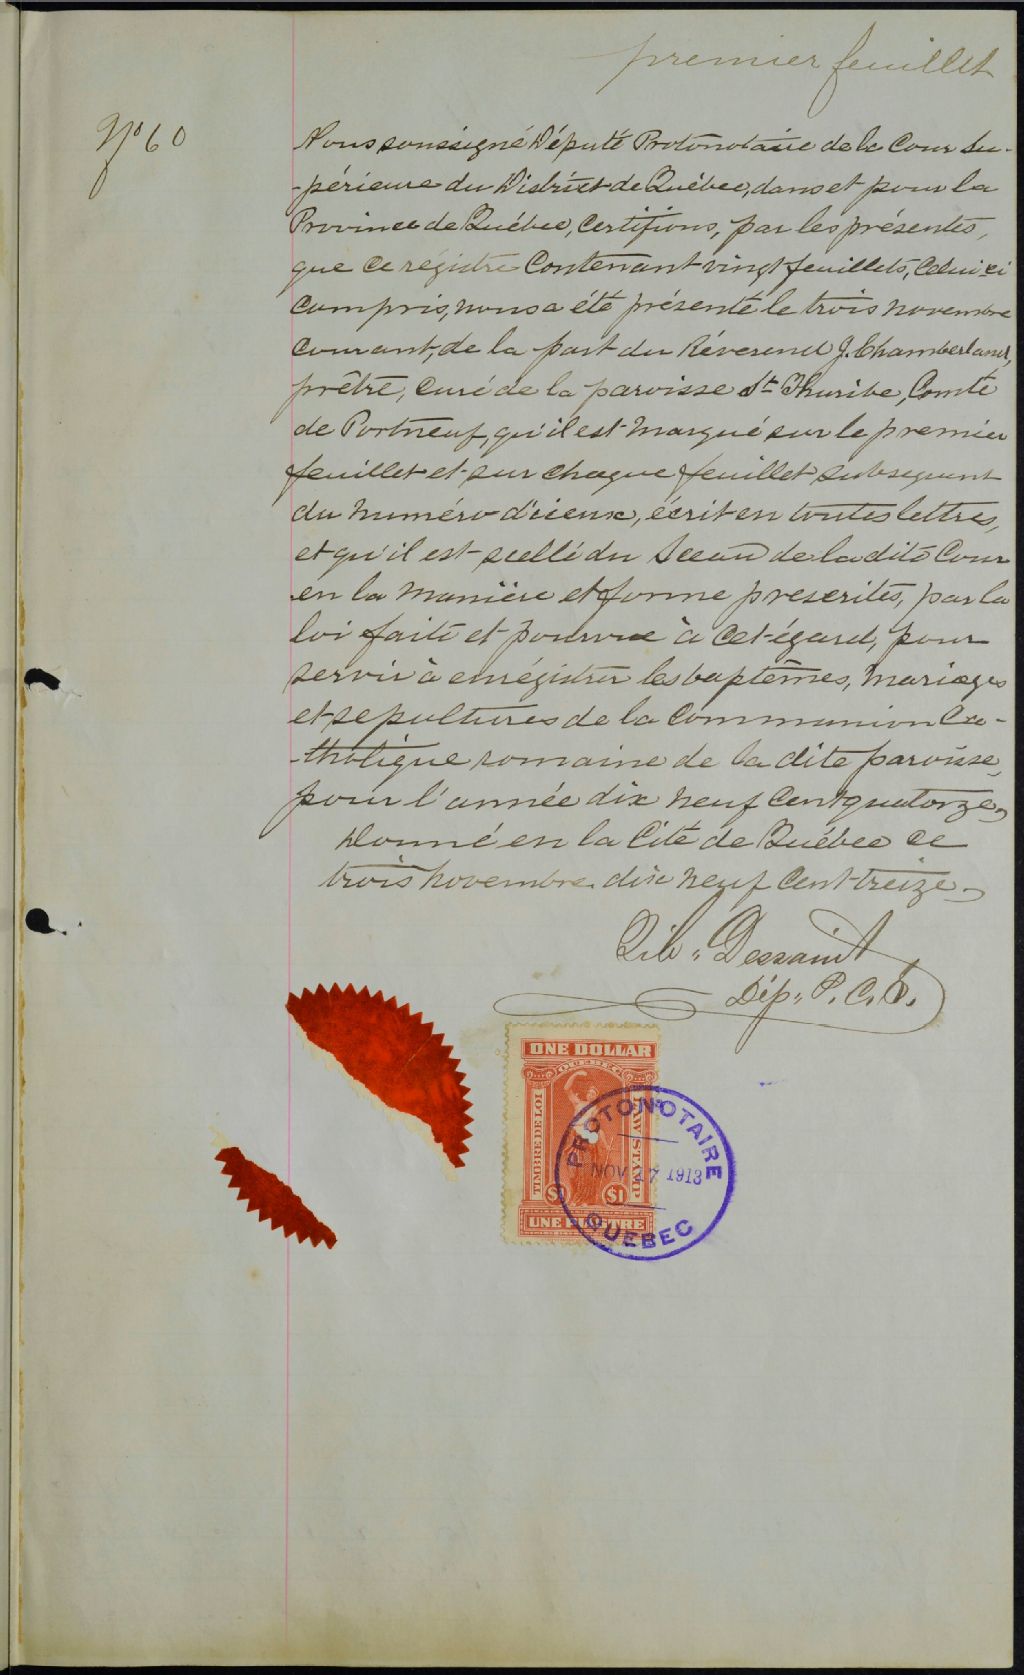 premier feuillet
No 60
Nous soussigné Député Protonotaire de la Cour Su-
-périeure du District de Québec, dans et pour la
Province de Québec, Certifions, par les présentes,
que ce régistre Contenant vingt feuillets, Celui ci
compris, nous a été présenté le trois novembre
Courant, de la part du Réverend J. Chamberland,
prêtre, curé de la paroisse St Thuribe, Comté
de Portneuf, qu'il est marqué sur le premier
feuillet et sur chaque feuillet subsequent
du numéro d'iceux, écrit en toutes lettres,
et qu'il est scellé du Sceau de la dite Cour
en la manière et forme prescrites, par la
loi faite et pourvue à cet égard, pour
servir à enrégistrer les baptêmes, mariages
et sepultures de la Communion Ca-
-tholique romaine de la dite paroisse,
pour l'année dix neuf Cent quatorze,
Donné en la Cité de Québec ce
trois novembre dix neuf Cent treize
Dessaint
Dép. P. C. S.
ONE DOLLAR
QUEBEC
TIMBRE DE LOI
LAW STAMP
$1 $1
UNE PIASTRE
PROTONOTAIRE
NOV 27 1913
QUEBEC